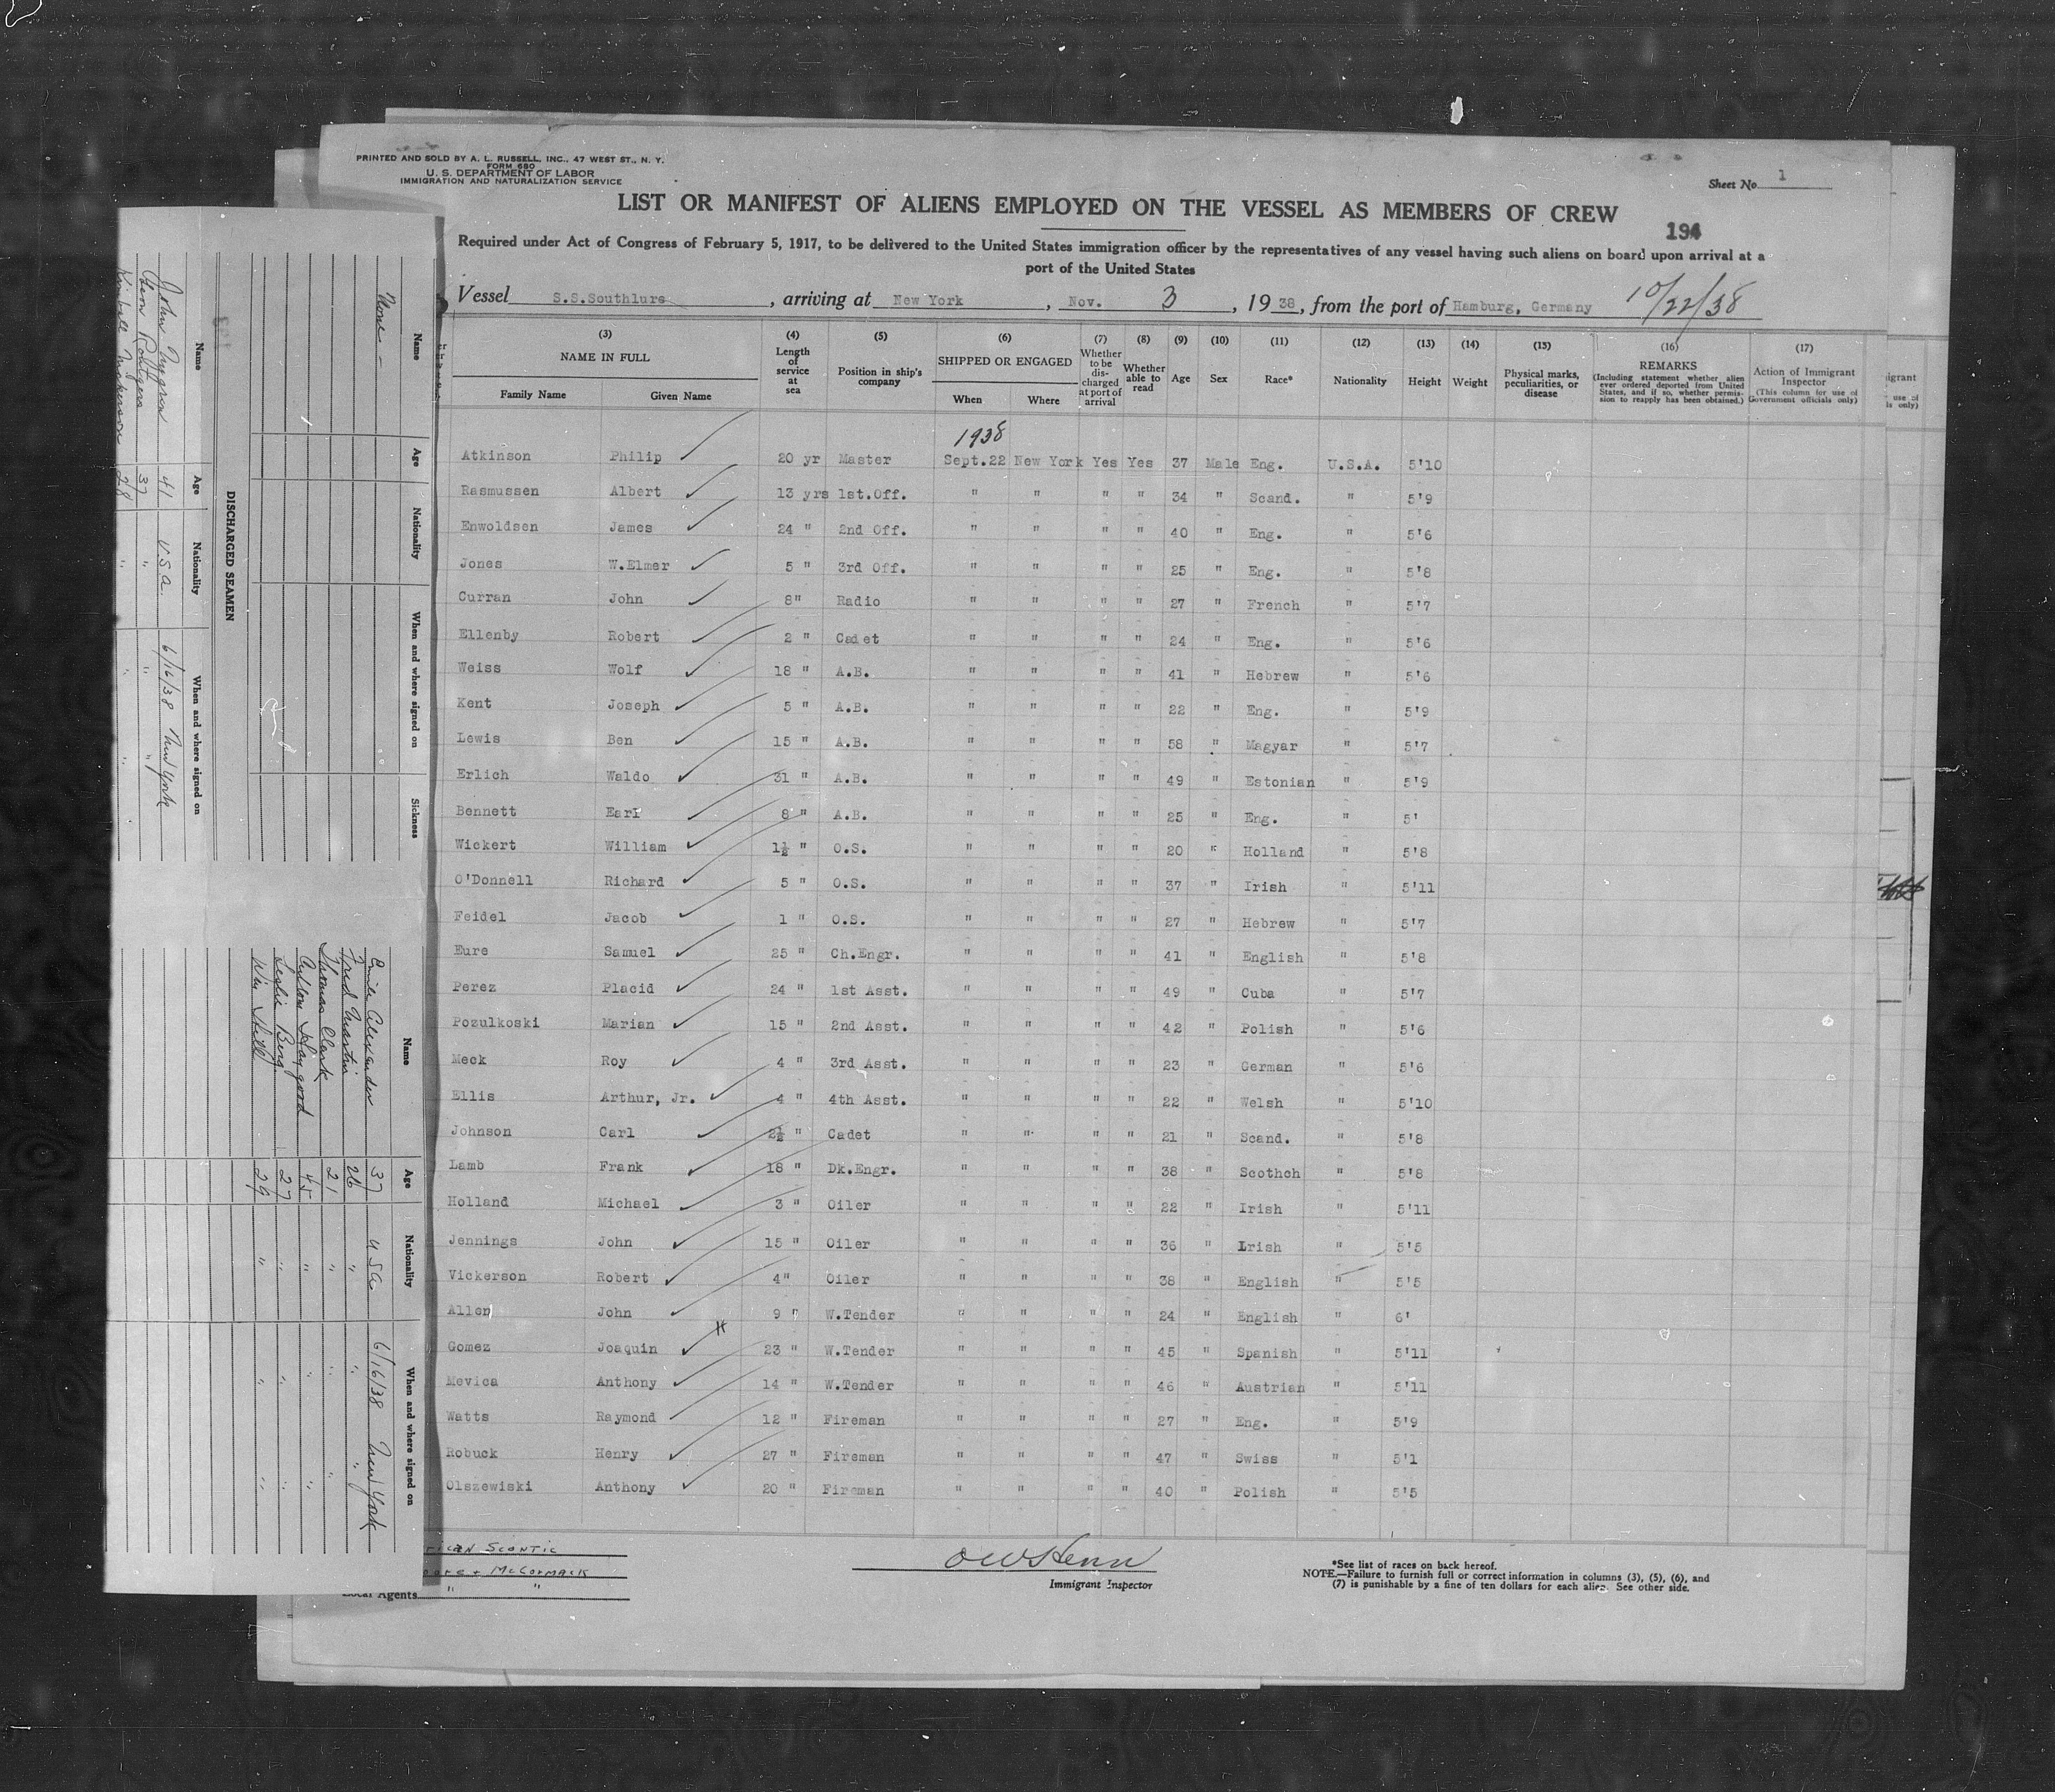 PRINTED AND SOLD BY A. L. RUSSELL, INC., 47 WEST ST., N. Y.
FORM 680
U. S. DEPARTMENT OF LABOR
IMMIGRATION AND NATURALIZATION SERVICE
Sheet No. 1
LIST OR MANIFEST OF ALIENS EMPLOYED ON THE VESSEL AS MEMBERS OF CREW
194
Required under Act of Congress of February 5, 1917, to be delivered to the United States immigration officer by the representatives of any vessel having such aliens on board upon arrival at a
port of the United States
Vessel S.S.Southlure, arriving at New York, Nov. 3, 1938, from the port of Hamburg, Germany 10/22/38
(3) (4) (5) (6) (7) (8) (9) (10) (11) (12) (13) (14) (15) (16) (17)
NAME IN FULL
Family Name Given Name
Length of service at sea
Position in ship's company
SHIPPED OR ENGAGED
When Where
Whether to be discharged at port of arrival
Whether able to read
Age Sex Race* Nationality Height Weight
Physical marks, peculiarities, or disease
REMARKS
(Including statement whether alien ever ordered deported from United States, and if so, whether permission to reapply has been obtained.)
Action of Immigrant Inspector
(This column for use of Government officials only)
1938
Atkinson Philip 20 yr Master Sept.22 New York Yes Yes 37 Male Eng. U.S.A. 5'10
Rasmussen Albert 13 yrs 1st.Off. " " " " 34 " Scand. " 5'9
Enwoldsen James 24 " 2nd Off. " " " " 40 " Eng. " 5'6
Jones W.Elmer 5 " 3rd Off. " " " " 25 " Eng. " 5'8
Curran John 8" Radio " " " " 27 " French " 5'7
Ellenby Robert 2 " Cadet " " " " 24 " Eng. " 5'6
Weiss Wolf 18 " A.B. " " " " 41 " Hebrew " 5'6
Kent Joseph 5 " A.B. " " " " 22 " Eng. " 5'9
Lewis Ben 15 " A.B. " " " " 58 " Magyar " 5'7
Erlich Waldo 31 " A.B. " " " " 49 " Estonian " 5'9
Bennett Earl 8 " A.B. " " " " 25 " Eng. " 5'
Wickert William 1½ " O.S. " " " " 20 " Holland " 5'8
O'Donnell Richard 5 " O.S. " " " " 37 " Irish " 5'11
Feidel Jacob 1 " O.S. " " " " 27 " Hebrew " 5'7
Eure Samuel 25 " Ch.Engr. " " " " 41 " English " 5'8
Perez Placid 24 " 1st Asst. " " " " 49 " Cuba " 5'7
Pozulkoski Marian 15 " 2nd Asst. " " " " 42 " Polish " 5'6
Meck Roy 4 " 3rd Asst. " " " " 23 " German " 5'6
Ellis Arthur, Jr. 4 " 4th Asst. " " " " 22 " Welsh " 5'10
Johnson Carl 2½ " Cadet " " " " 21 " Scand. " 5'8
Lamb Frank 18 " Dk.Engr. " " " " 38 " Scothch " 5'8
Holland Michael 3 " Oiler " " " " 22 " Irish " 5'11
Jennings John 15 " Oiler " " " " 36 " Irish " 5'5
Vickerson Robert 4" Oiler " " " " 38 " English " 5'5
Allen John 9 " W.Tender " " " " 24 " English " 6'
Gomez Joaquin 23 " W.Tender " " " " 45 " Spanish " 5'11
Mevica Anthony 14 " W.Tender " " " " 46 " Austrian " 5'11
Watts Raymond 12 " Fireman " " " " 27 " Eng. " 5'9
Robuck Henry 27 " Fireman " " " " 47 " Swiss " 5'1
Olszewiski Anthony 20 " Fireman " " " " 40 " Polish " 5'5
rican Scantic
McCormack
Local Agents " "
Immigrant Inspector
*See list of races on back hereof.
NOTE.—Failure to furnish full or correct information in columns (3), (5), (6), and
(7) is punishable by a fine of ten dollars for each alien. See other side.
Name Age Nationality When and where signed on Sickness
None —
DISCHARGED SEAMEN
Name Age Nationality When and where signed on
John Nygren 41 U.S.A. 6/16/38 New York
Rontgers 37 " " "
28 " " "
Name Age Nationality When and where signed on
Emile Alexander 37 USA 6/16/38 New York
Fred Martin 26 " " "
Thomas Clark 21 " " "
Haygood 45 " " "
Leslie Berg 27 " " "
Wm Still 29 " " "